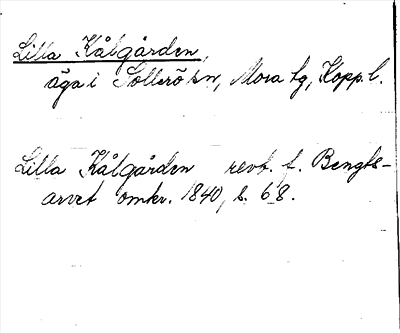 Lilla Kålgården,
äga i Sollerö sn, Mora tg, Kopp. l.
Lilla Kålgården revb. f. Bengts-
arvet omkr. 1840, s. 68.